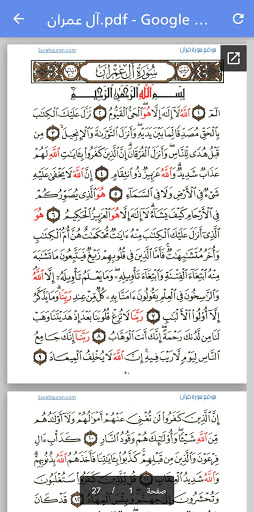 آل عمران.pdf - Google ...
Surahquran.com
موقع سورة قرآن
سُورَةُ آلِ عِمْرَانَ
بِسْمِ اللَّهِ الرَّحْمَٰنِ الرَّحِيمِ
الٓمٓ ١ اللَّهُ لَا إِلَٰهَ إِلَّا هُوَ الْحَيُّ الْقَيُّومُ ٢ نَزَّلَ عَلَيْكَ الْكِتَٰبَ
بِالْحَقِّ مُصَدِّقًا لِّمَا بَيْنَ يَدَيْهِ وَأَنزَلَ التَّوْرَىٰةَ وَالْإِنجِيلَ ٣ مِن
قَبْلُ هُدًى لِّلنَّاسِ وَأَنزَلَ الْفُرْقَانَ إِنَّ الَّذِينَ كَفَرُوا بِـَٔايَٰتِ اللَّهِ لَهُمْ
عَذَابٌ شَدِيدٌ وَاللَّهُ عَزِيزٌ ذُو انتِقَامٍ ٤ إِنَّ اللَّهَ لَا يَخْفَىٰ عَلَيْهِ
شَىْءٌ فِى الْأَرْضِ وَلَا فِى السَّمَآءِ ٥ هُوَ الَّذِى يُصَوِّرُكُمْ
فِى الْأَرْحَامِ كَيْفَ يَشَآءُ لَا إِلَٰهَ إِلَّا هُوَ الْعَزِيزُ الْحَكِيمُ ٦ هُوَ
الَّذِى أَنزَلَ عَلَيْكَ الْكِتَٰبَ مِنْهُ ءَايَٰتٌ مُّحْكَمَٰتٌ هُنَّ أُمُّ الْكِتَٰبِ
وَأُخَرُ مُتَشَٰبِهَٰتٌ فَأَمَّا الَّذِينَ فِى قُلُوبِهِمْ زَيْغٌ فَيَتَّبِعُونَ مَا تَشَٰبَهَ
مِنْهُ ابْتِغَآءَ الْفِتْنَةِ وَابْتِغَآءَ تَأْوِيلِهِ وَمَا يَعْلَمُ تَأْوِيلَهُ إِلَّا اللَّهُ
وَالرَّٰسِخُونَ فِى الْعِلْمِ يَقُولُونَ ءَامَنَّا بِهِ كُلٌّ مِّنْ عِندِ رَبِّنَا وَمَا يَذَّكَّرُ
إِلَّا أُولُوا الْأَلْبَٰبِ ٧ رَبَّنَا لَا تُزِغْ قُلُوبَنَا بَعْدَ إِذْ هَدَيْتَنَا وَهَبْ
لَنَا مِن لَّدُنكَ رَحْمَةً إِنَّكَ أَنتَ الْوَهَّابُ ٨ رَبَّنَا إِنَّكَ جَامِعُ
النَّاسِ لِيَوْمٍ لَّا رَيْبَ فِيهِ إِنَّ اللَّهَ لَا يُخْلِفُ الْمِيعَادَ ٩
Surahquran.com
موقع سورة قرآن
إِنَّ الَّذِينَ كَفَرُوا لَن تُغْنِىَ عَنْهُمْ أَمْوَٰلُهُمْ وَلَا أَوْلَٰدُهُم
مِّنَ اللَّهِ شَيْـًٔا وَأُولَٰئِكَ هُمْ وَقُودُ النَّارِ ١٠ كَدَأْبِ ءَالِ
فِرْعَوْنَ وَالَّذِينَ مِن قَبْلِهِمْ كَذَّبُوا بِـَٔايَٰتِنَا فَأَخَذَهُمُ اللَّهُ بِذُنُوبِهِمْ
وَاللَّهُ شَدِيدُ سَتُغْلَبُونَ
وَتُحْشَرُونَ قَدْ كَانَ
صفحة 1 - 27